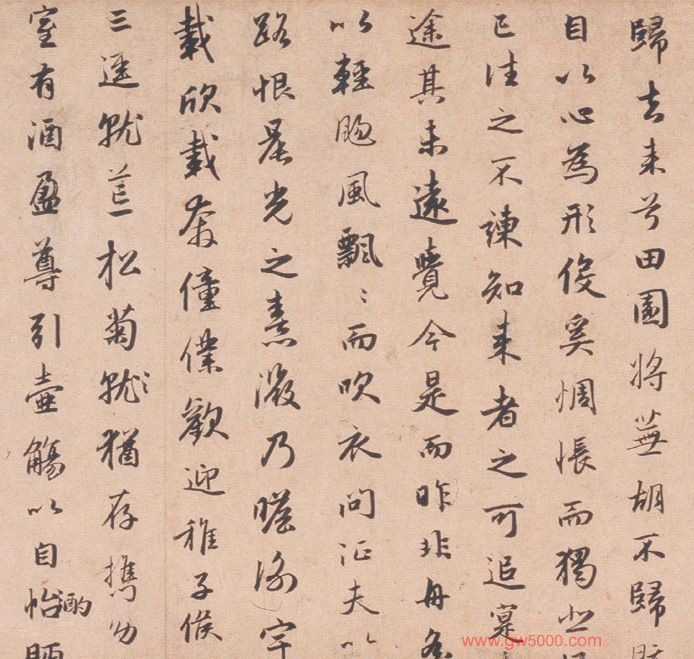 歸去来兮田園將蕪胡不歸既
自以心為形役奚惆悵而獨悲
已往之不諫知来者之可追寔
途其未遠覺今是而昨非舟
以輕颺風飄〻而吹衣問征夫以
路恨晨光之熹微乃瞻衡宇
載欣載奔僮僕歡迎稚子候
三逕就荒松菊就〻猶存攜幼
室有酒盈尊引壺觴以自怡酌眄
www.gw5000.com